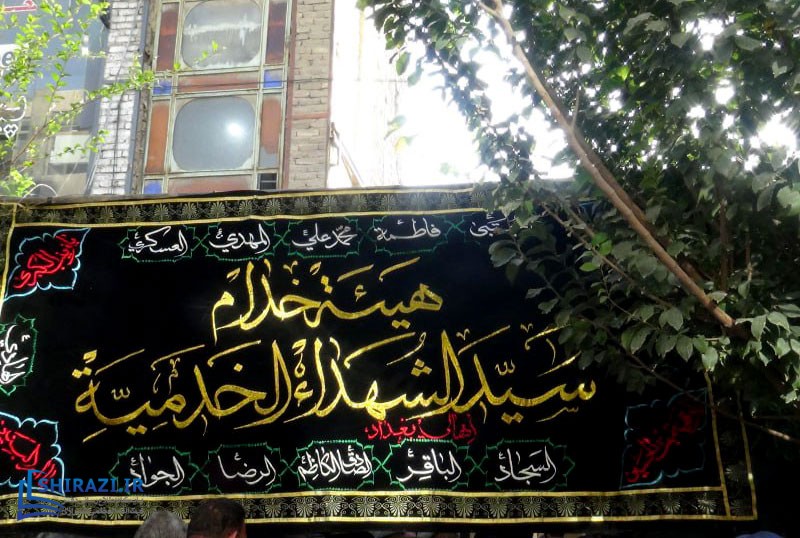 المجتبى فاطمة محمد علي المهدي العسكري
هيئة خدام
سيد الشهداء الخدمية
اهالي بغداد
السجاد الباقر الصادق الكاظم الرضا الجواد
SHIRAZI.IR